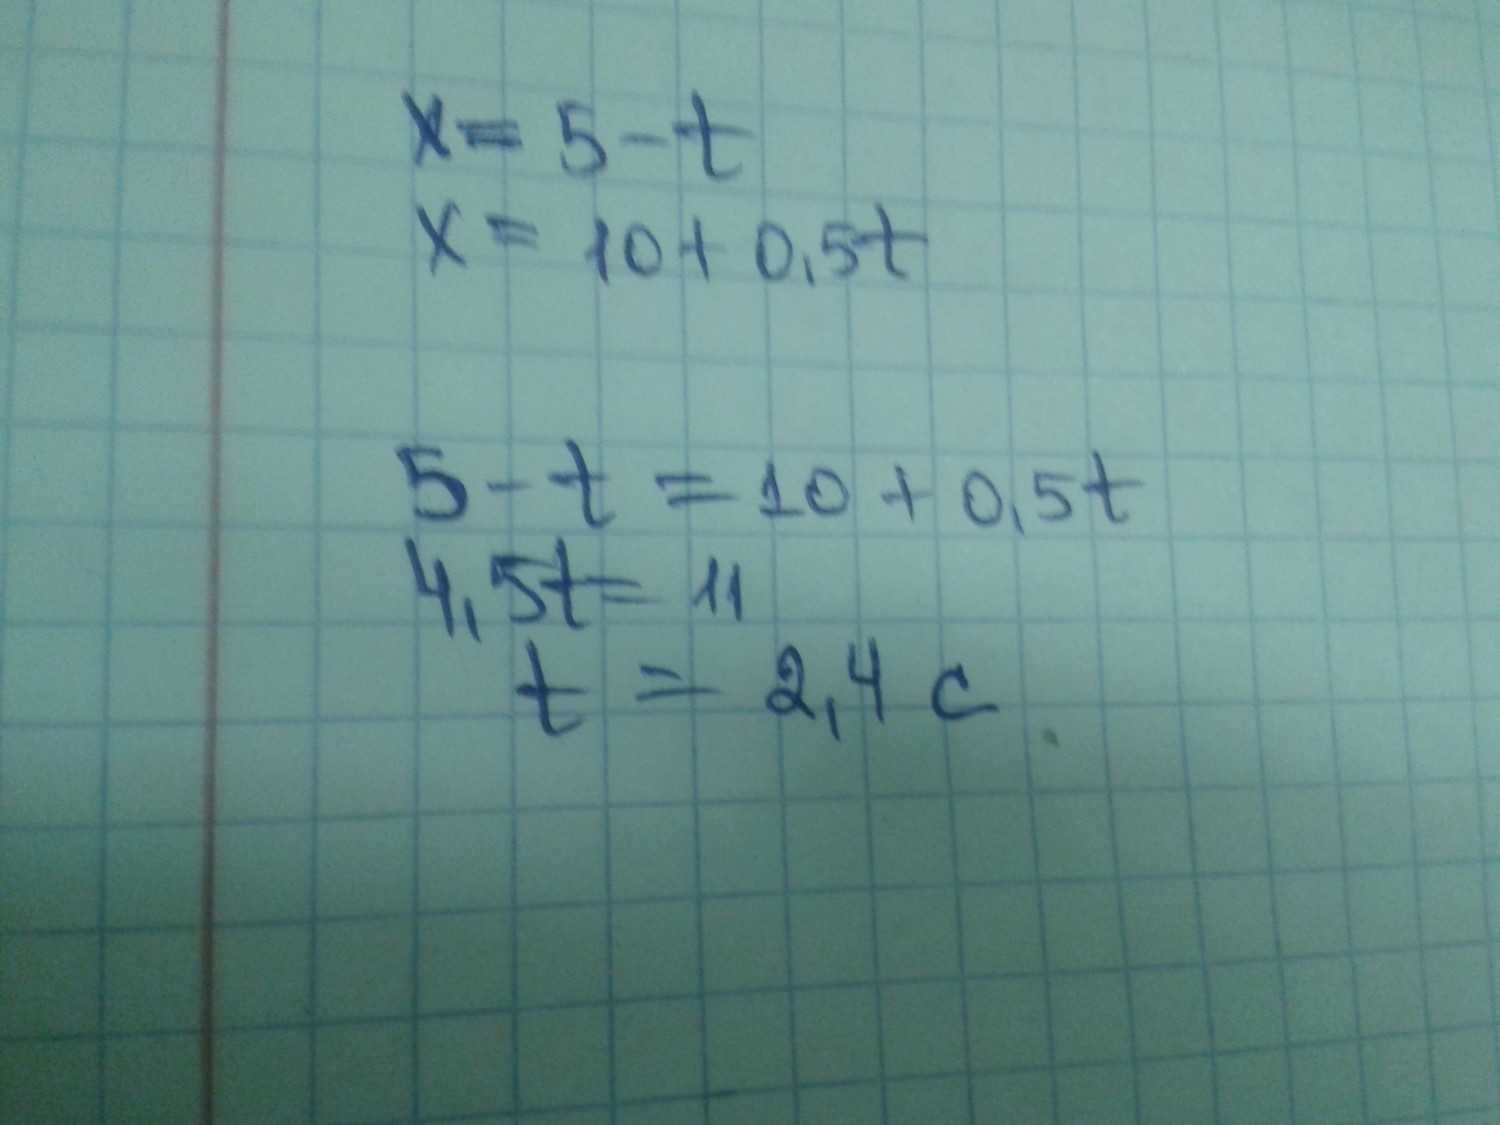 x = 5 - t
x = 10 + 0,5t
5 - t = 10 + 0,5t
4,5t = 11
t = 2,4 c